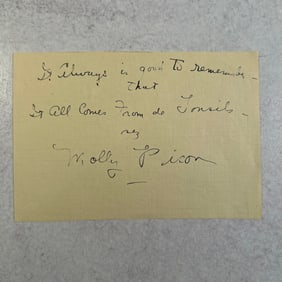 It Always is good to remember -
that
It All Comes From de Tonsils -
says
Molly Picon